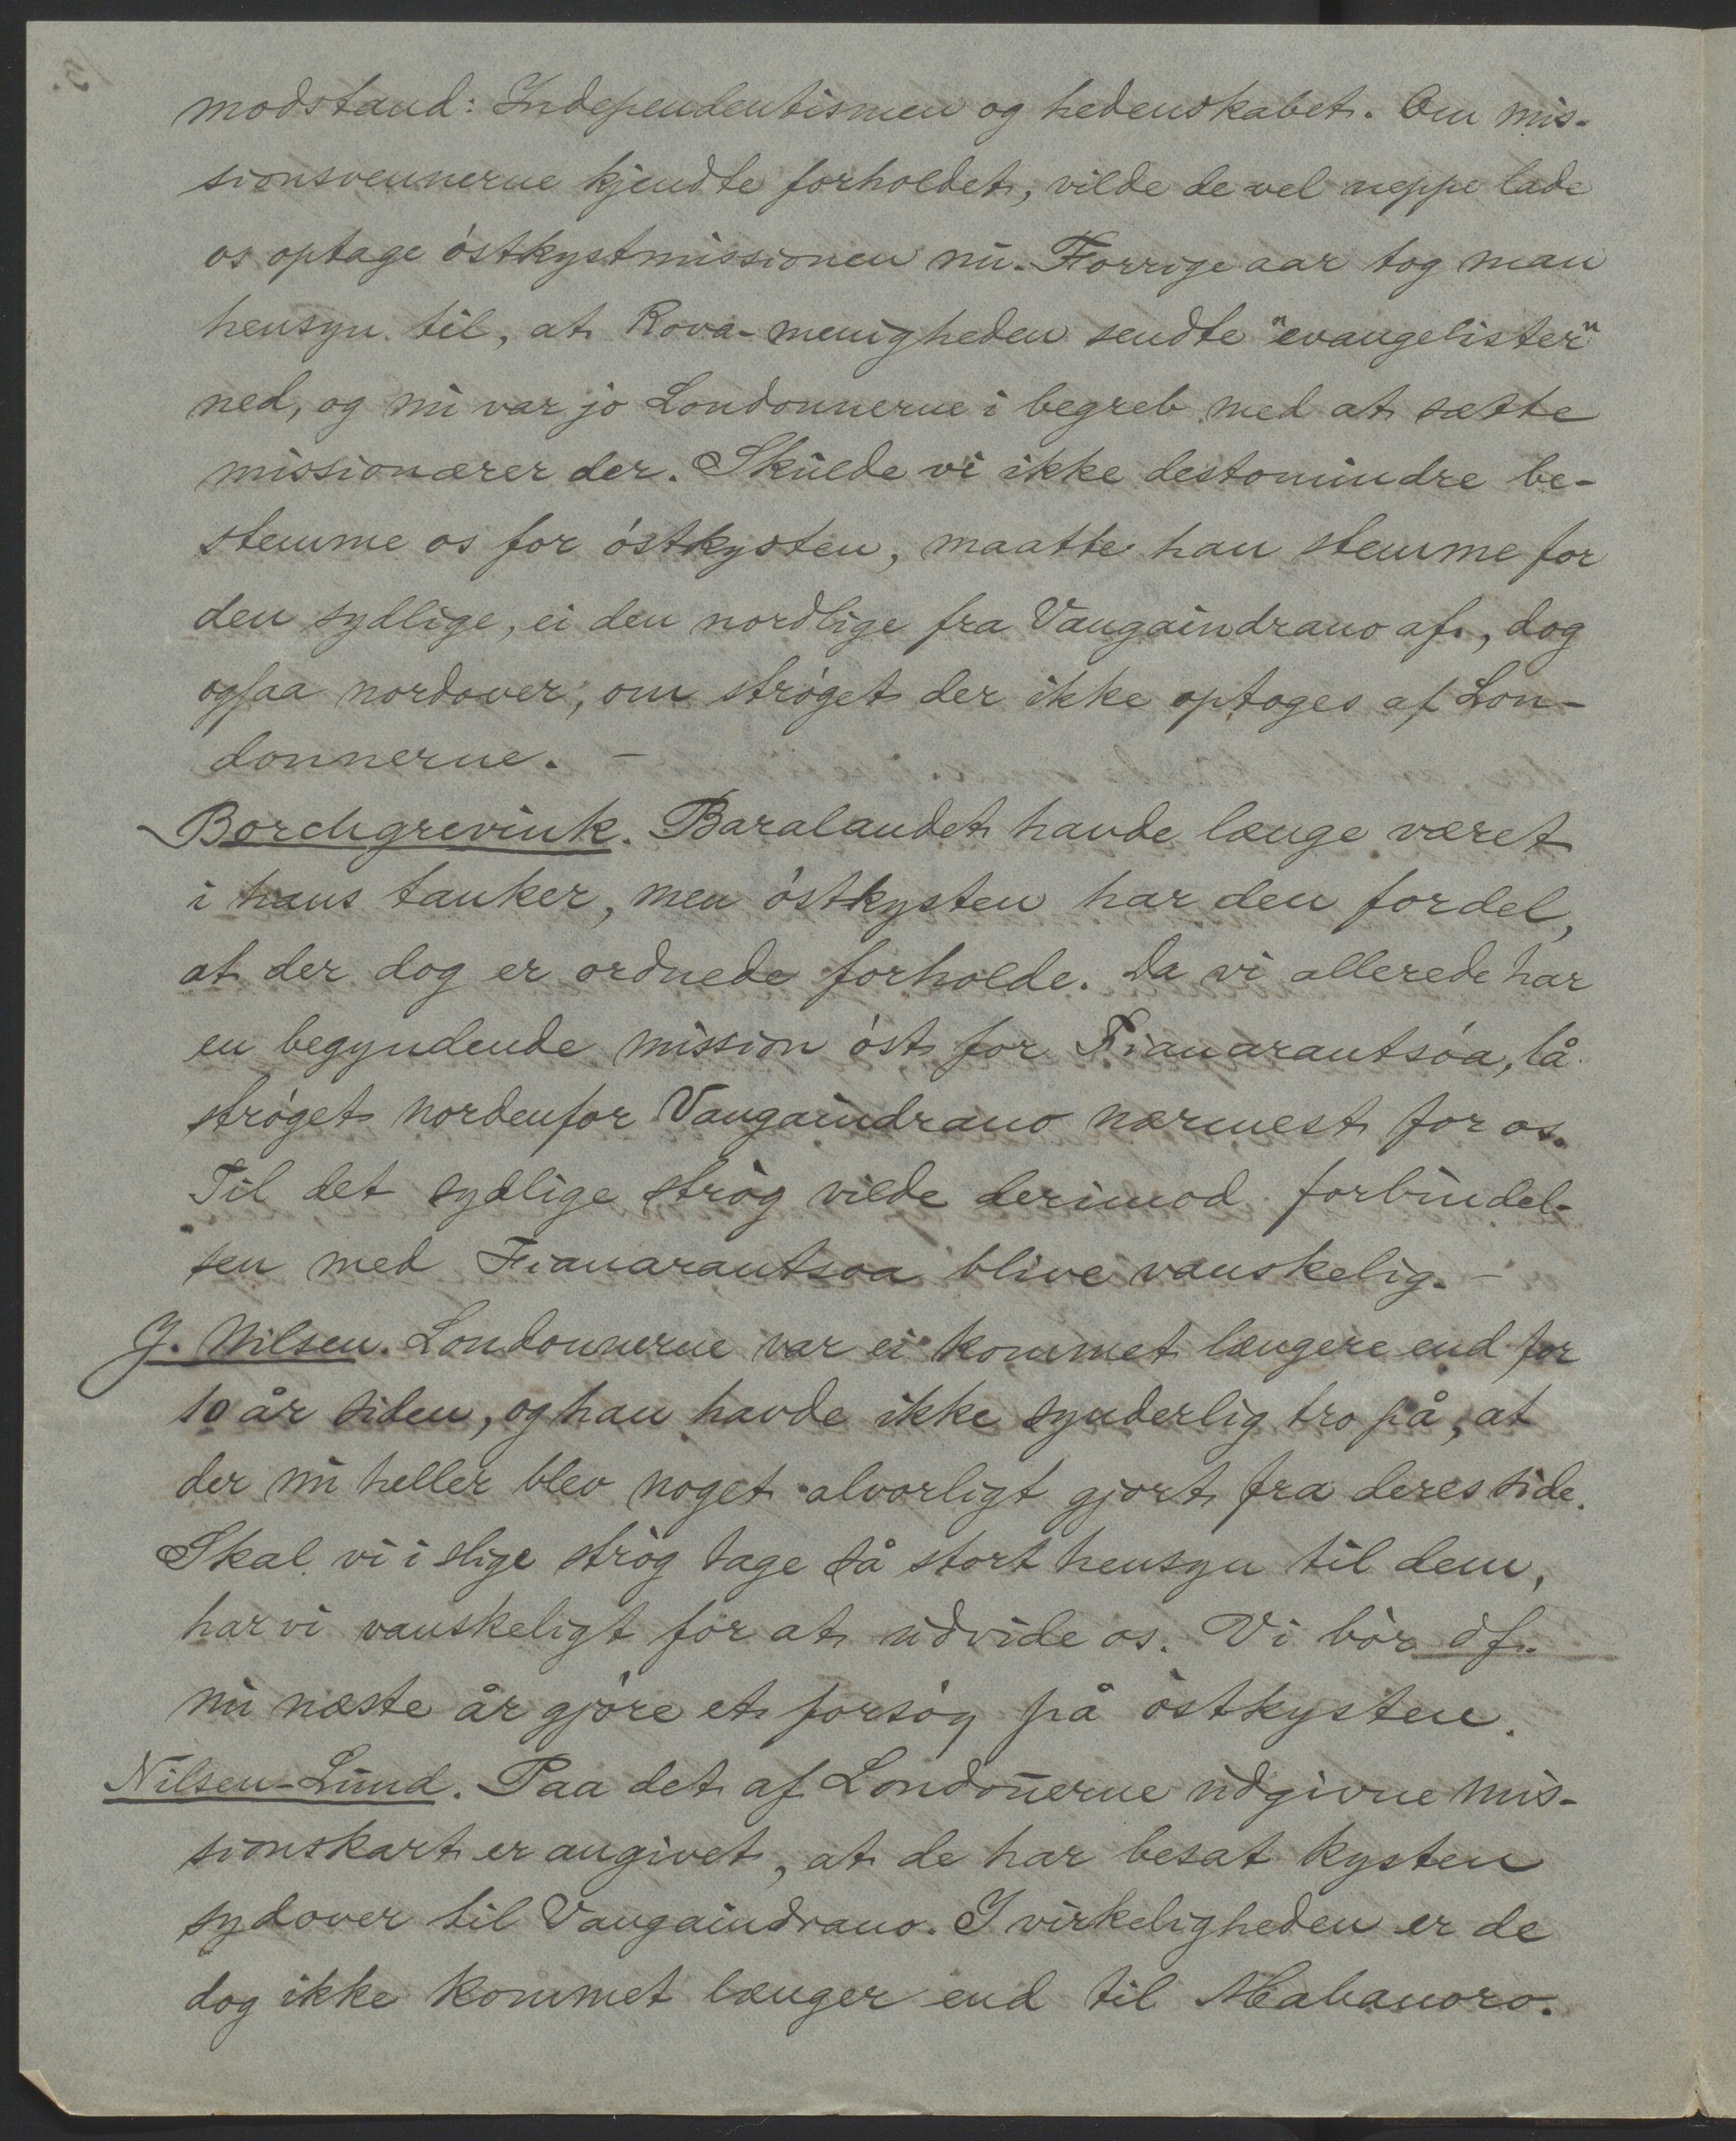 modstand: Independentismen og hedenskabet. Om mis-
sionsvennerne kjendte forholdet, vilde de vel neppe lade
os optage östkystmissionen nu. Forrige aar tog man
hensyn til, at Rova-menigheden sendte "evangelister"
ned, og nu var jo Londonnerne i begreb med at sætte
missionærer der. Skulde vi ikke destomindre be-
stemme os for östkysten, maatte han stemme for
den sydlige, ei den nordlige fra Vangaindrano af, dog
ogsaa nordover, om ströget der ikke optoges af Lon-
donnerne. –
Borchgrevink. Baralandet havde længe været
i hans tanker, men östkysten har den fordel,
at der dog er ordnede forholde. Da vi allerede har
en begyndende mission öst for Fianarantsóa, lå
ströget nordenfor Vangaindrano nærmest for os.
Til det sydlige strög vilde derimod forbindel-
sen med Fianarantsoa blive vanskelig. –
J. Nilsen. Londonnerne var ei kommet længere end for
10 år siden, og han havde ikke synderlig tro på, at
der nu heller blev noget alvorligt gjort fra deres side.
Skal vi i slige strög tage så stort hensyn til dem,
har vi vanskeligt for at udvide os. Vi bör df.
nu næste år gjöre et forsög på östkysten.
Nilsen-Lund. Paa det af Londoñerne udgivne mis-
sionskart er angivet, at de har besat kysten
sydover til Vangaindrano. I virkeligheden er de
dog ikke kommet længer end til Mahanoro.